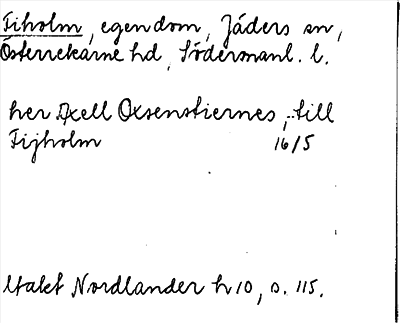 Fiholm, egendom, Jäders sn,
Österrekarne hd, Södermanl. l.
her Axell Oxsenstiernes, till
Fijholm 16/5
Utakt Nordlander h 10, s. 115.